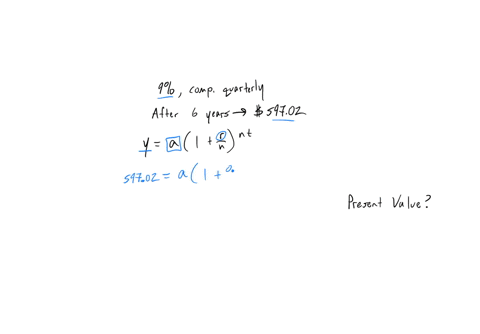 9%, comp. quarterly
After 6 years → $597.02
y = a(1 + r/n)^nt
597.02 = a(1 + 0.
Present Value?